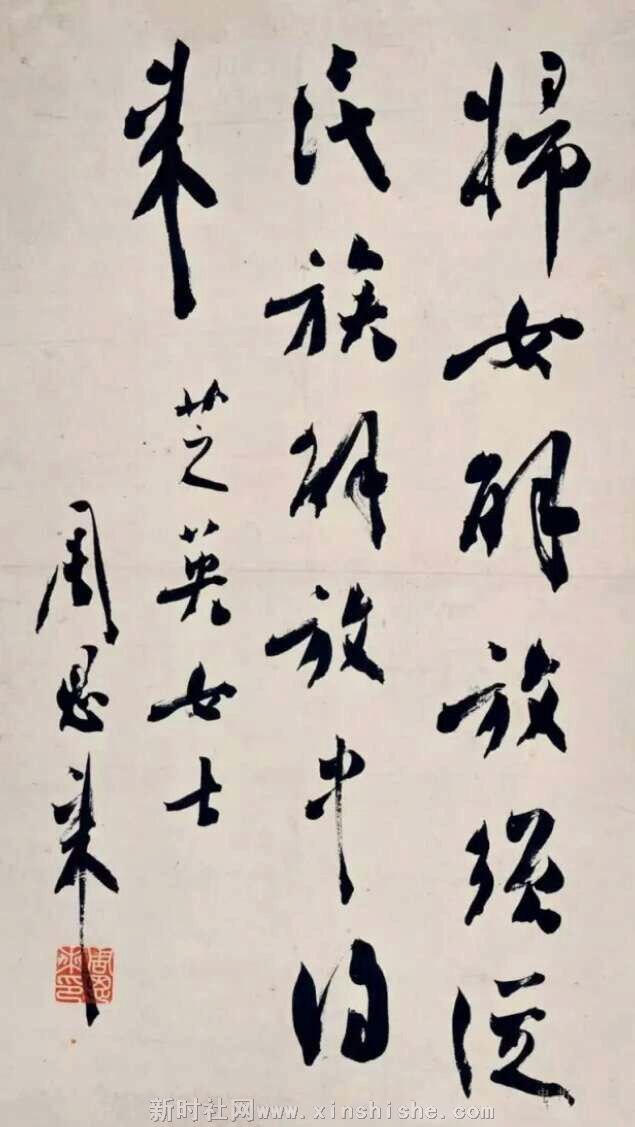 婦女解放須從
民族解放中得
來
芝英女士
周恩來
周恩來印
新时社网www.xinshishe.com